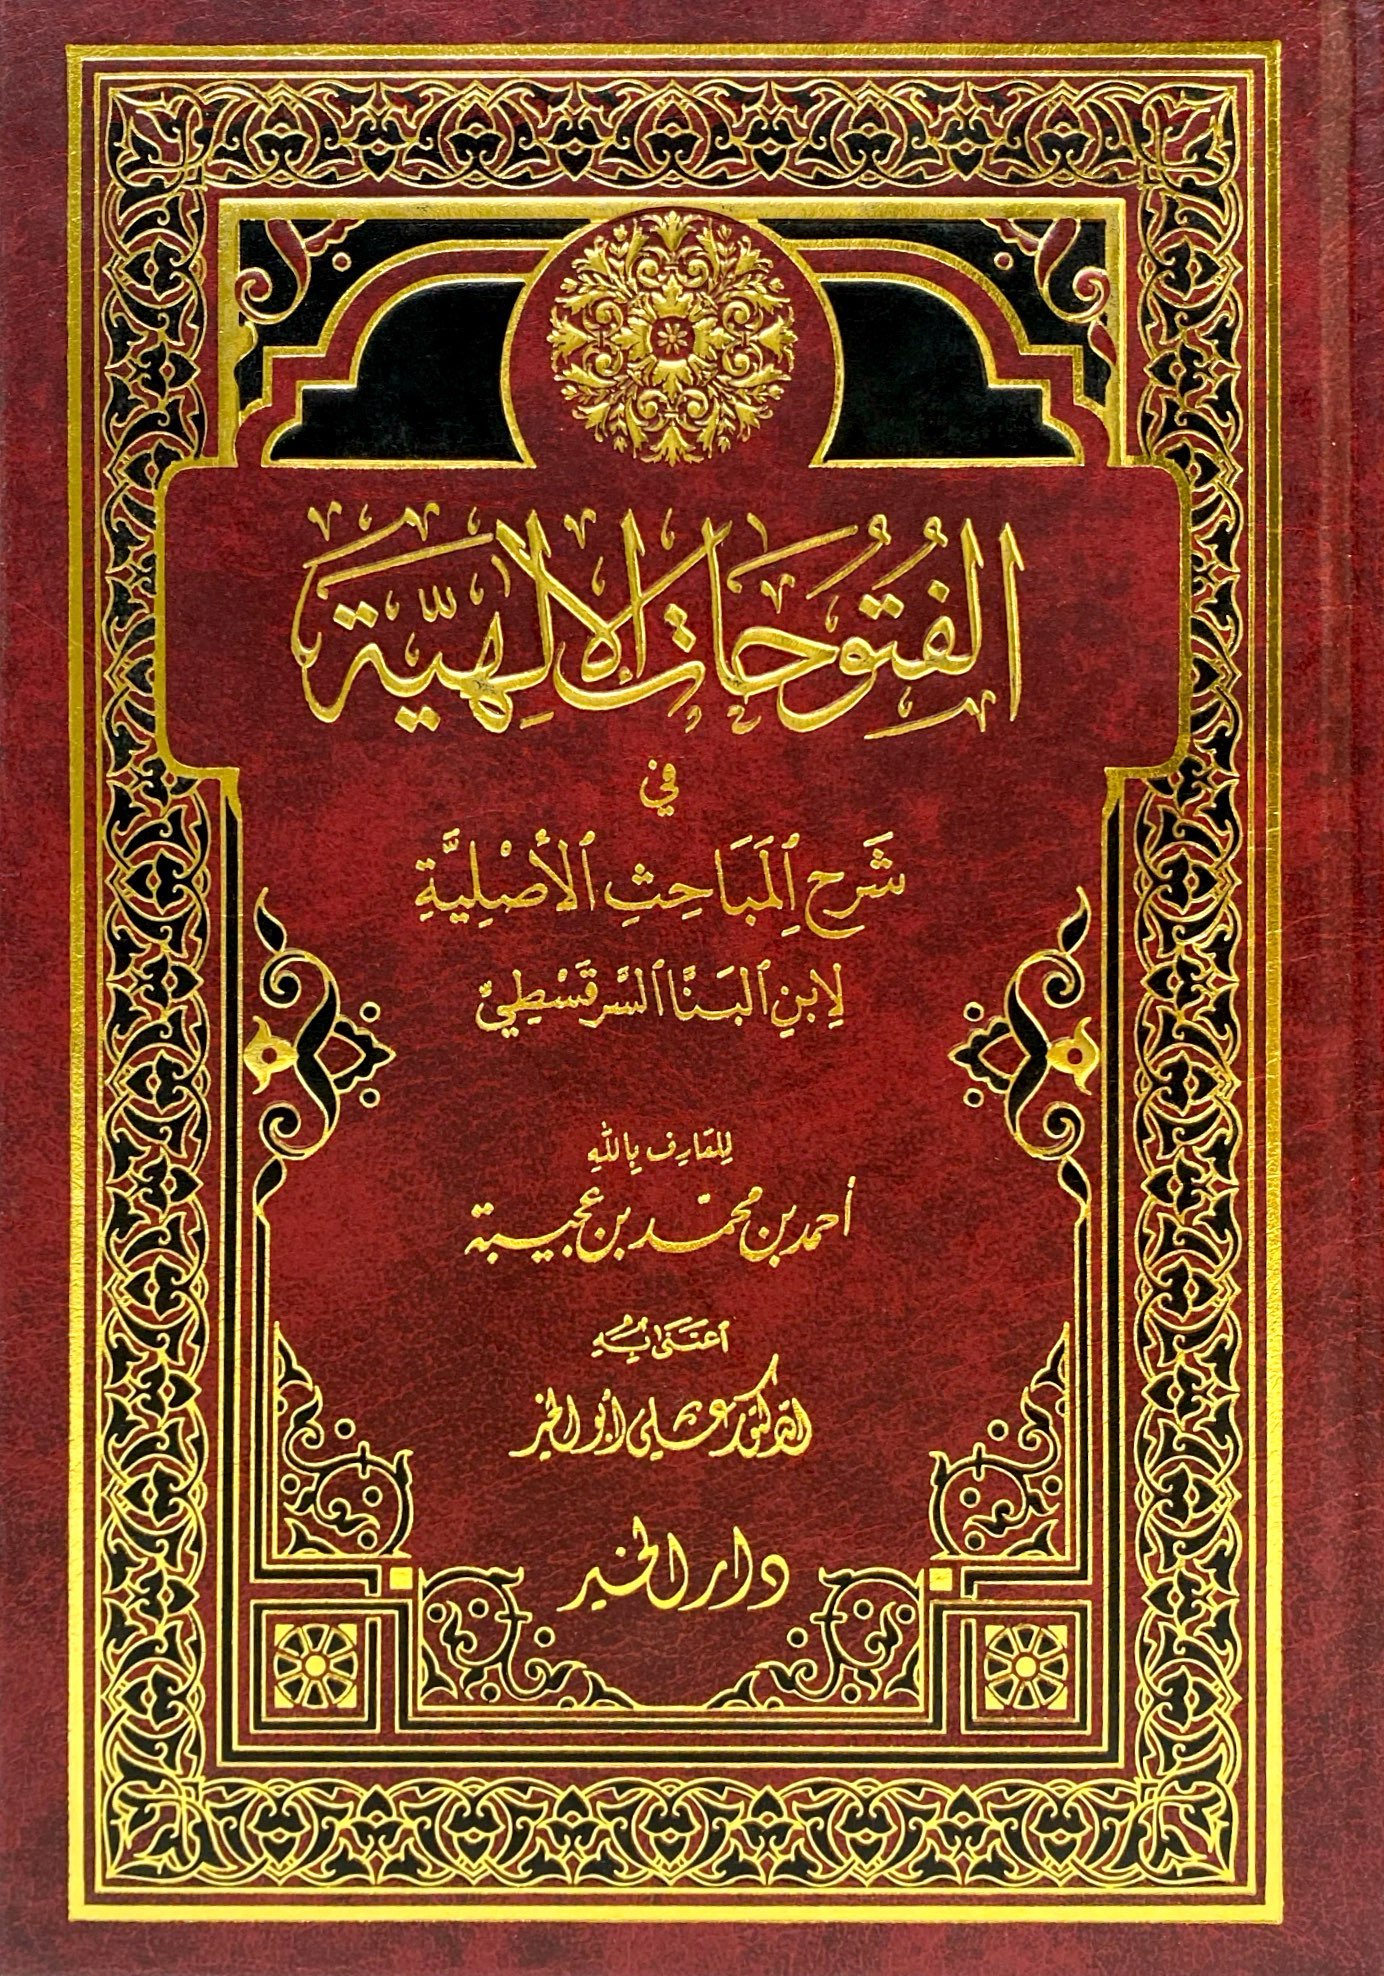 الفُتُوحَاتُ الإِلٰهِيَّة
في
شَرْحِ ٱلمَبَاحِثِ ٱلأَصْلِيَّةِ
لِابنِ ٱلبَنَّا ٱلسَّرَقَسْطِيِّ
لِلعَارِفِ بِاللّٰهِ
أحمد بن محمّد بن عجيبة
ٱعتَنَىٰ بِهِ
الدكتور علي أبو الخير
دار الخير